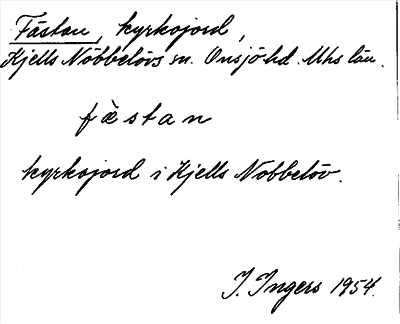 Fästan, kyrkojord,
Kjells Nöbbelövs sn. Onsjö hd. Mhs län.
fàstan
kyrkojord i Kjells Nöbbelöv.
I. Ingers 1954.